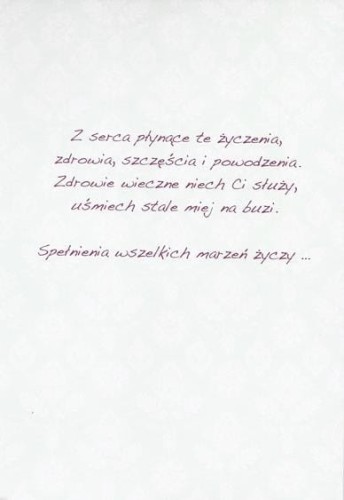 Z serca płynące te życzenia,
zdrowia, szczęścia i powodzenia.
Zdrowie wieczne niech Ci służy,
uśmiech stale miej na buzi.
Spełnienia wszelkich marzeń życzy ...